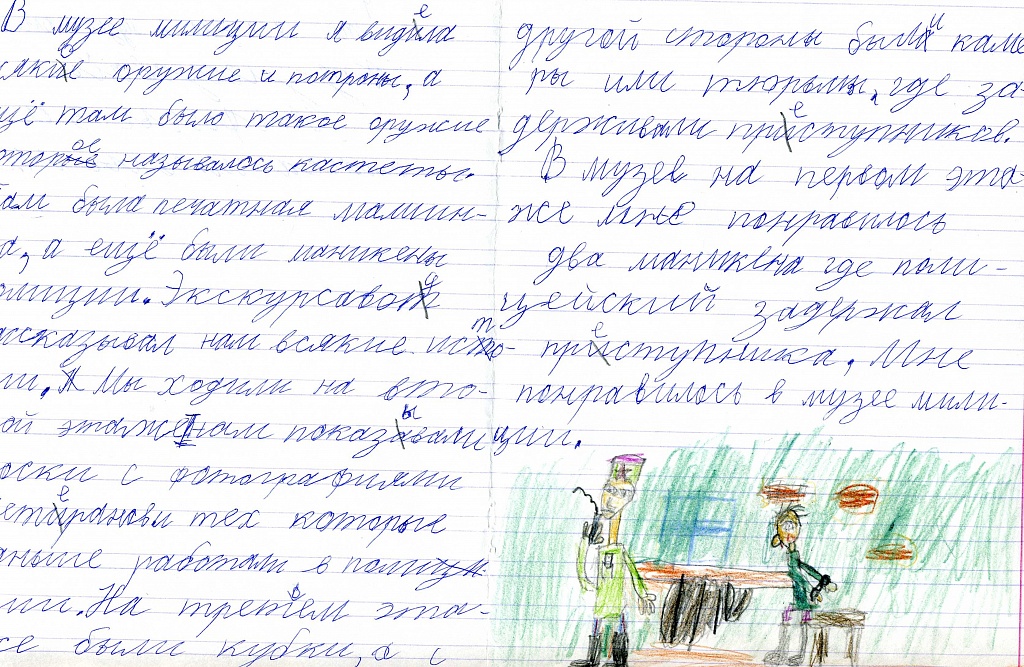 В музее милиции я видела
сякое оружие и потроны, а
щё там было такое оружие
оторое называлось кастеты.
ам была печатная машин-
а, а ещё были маникены
олиции. Экскурсавод
ассказывал нам всякие исто-
ии. Мы ходили на вто-
ой этаж нам показывали
оски с фотографиями
етеранов и тех которые
аньше работали в полиц
ии. На третьем эта-
се были кубки, а с
другой стороны были каме
ры или тюрьмы, где за-
держивали преступников.
В музее на первом эта-
же мне понравилось
два маникена где поли-
цейский задержал
преступника. Мне
понравилось в музее мили-
ции.